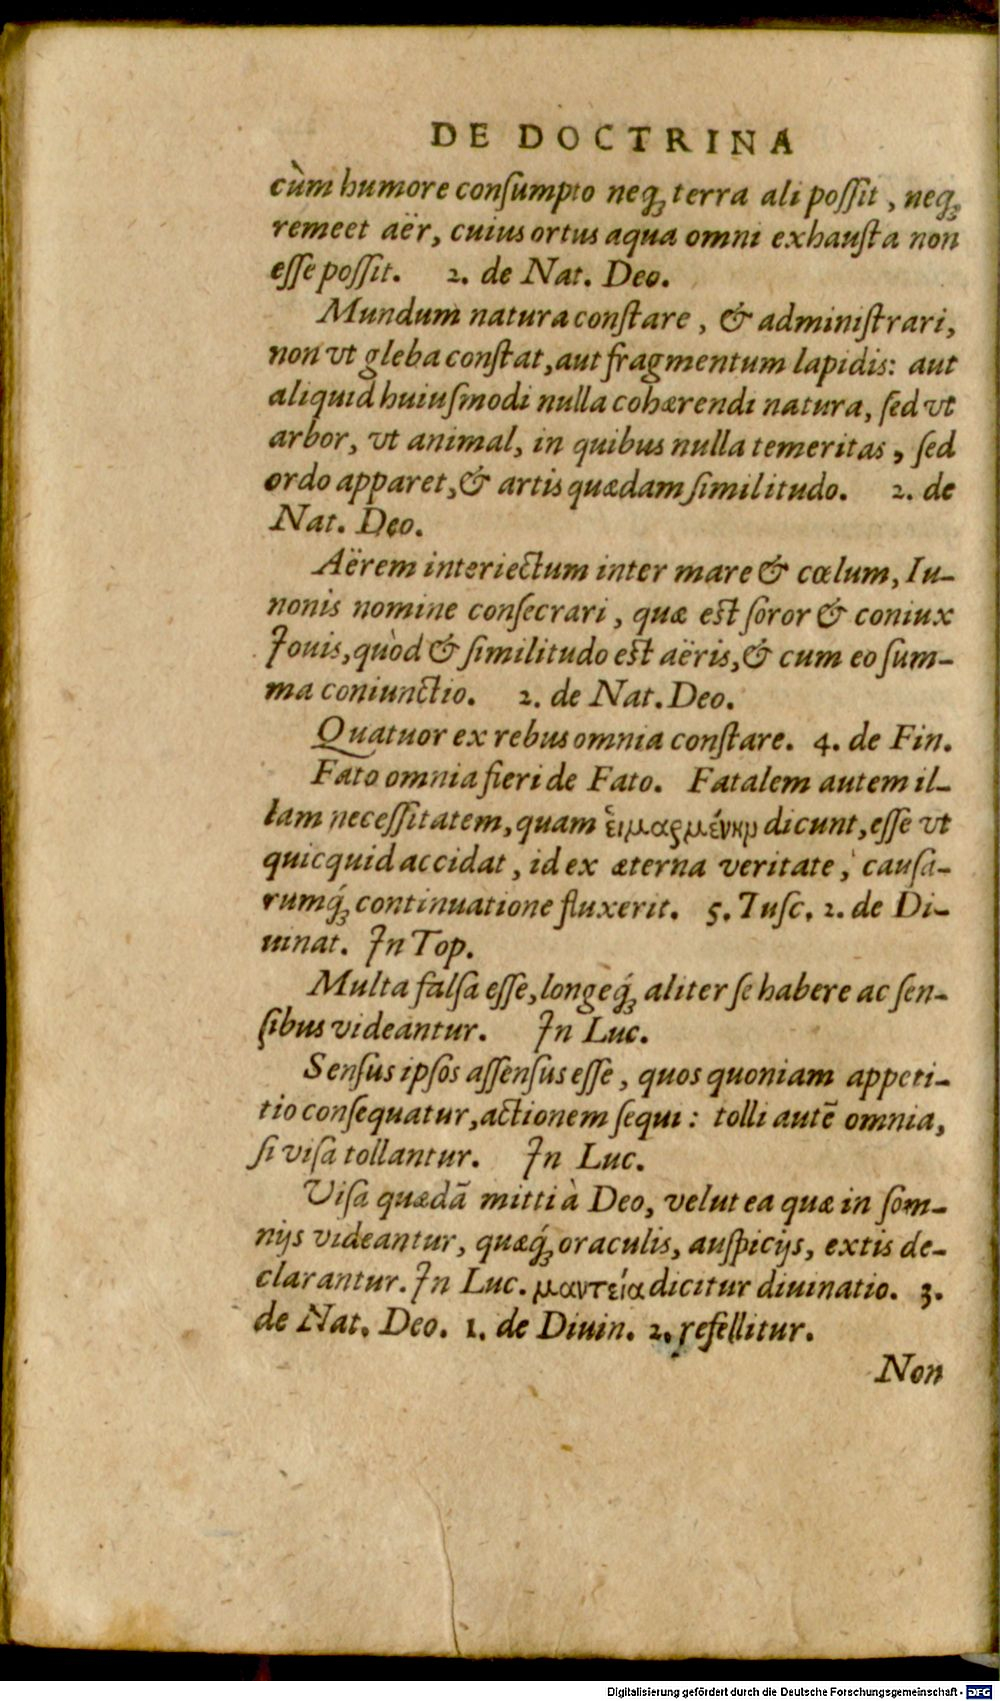 DE DOCTRINA
cùm humore conſumpto neqꝫ terra ali poſſit, neqꝫ
remeet aër, cuius ortus aqua omni exhauſta non
eſſe poſſit. 2. de Nat. Deo.
Mundum natura conſtare, & adminiſtrari,
non vt gleba conſtat, aut fragmentum lapidis: aut
aliquid huiuſmodi nulla cohærendi natura, ſed vt
arbor, vt animal, in quibus nulla temeritas, ſed
ordo apparet, & artis quædam ſimilitudo. 2. de
Nat. Deo.
Aërem interiectum inter mare & cœlum, Iu-
nonis nomine conſecrari, quæ eſt ſoror & coniux
Iouis, quòd & ſimilitudo eſt aëris, & cum eo ſum-
ma coniunctio. 2. de Nat. Deo.
Quatuor ex rebus omnia conſtare. 4. de Fin.
Fato omnia fieri de Fato. Fatalem autem il-
lam neceſſitatem, quam εἱμαρμένην dicunt, eſſe vt
quicquid accidat, id ex æterna veritate, cauſa-
rumq́ꝫ continuatione fluxerit. 5. Tuſc. 2. de Di-
uinat. In Top.
Multa falſa eſſe, longeq́ꝫ aliter ſe habere ac ſen-
ſibus videantur. In Luc.
Senſus ipſos aſſenſus eſſe, quos quoniam appeti-
tio conſequatur, actionem ſequi: tolli autẽ omnia,
ſi viſa tollantur. In Luc.
Viſa quædã mitti à Deo, velut ea quæ in ſom-
nijs videantur, quæq́ꝫ oraculis, auſpicijs, extis de-
clarantur. In Luc. μαντεία dicitur diuinatio. 3.
de Nat. Deo. 1. de Diuin. 2. refellitur.
Non
Digitalisierung gefördert durch die Deutsche Forschungsgemeinschaft - DFG